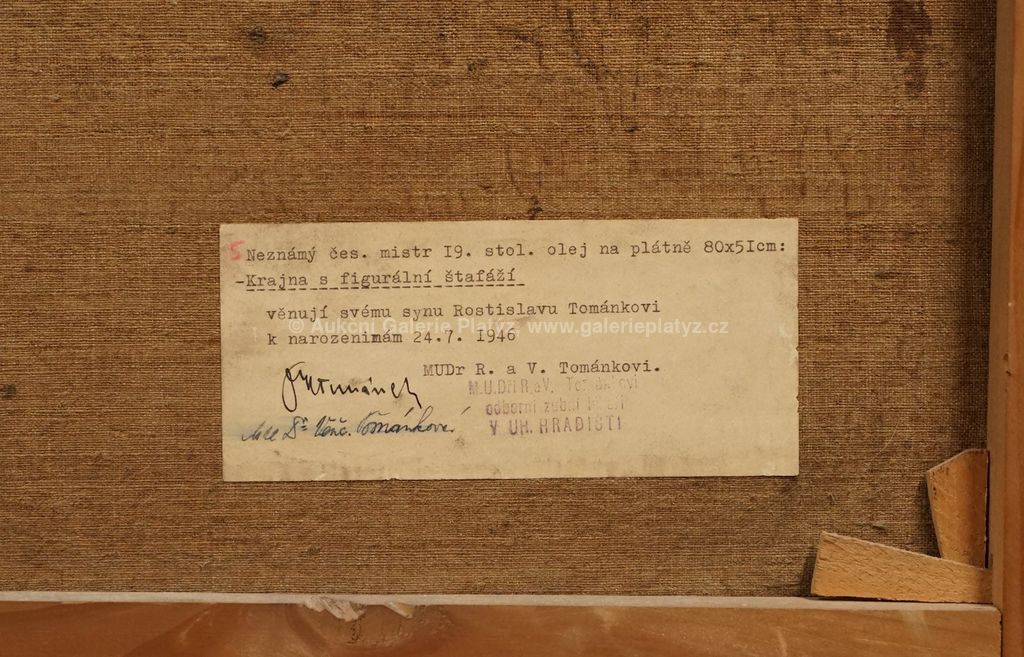 5 Neznámý čes. mistr I9. stol. olej na plátně 80x5Icm:
-Krajna s figurální štafáží
věnují svému synu Rostislavu Tománkovi
© Aukční Galerie Platýz, www.galerieplatyz.cz
k narozeninám 24.7. 1946
MUDr R. a V. Tománkovi.
M.U.DR R. a V. Tománkovi
odborní zubní lékaři
V UH. HRADIŠTI
Dr Věnč. Tománková